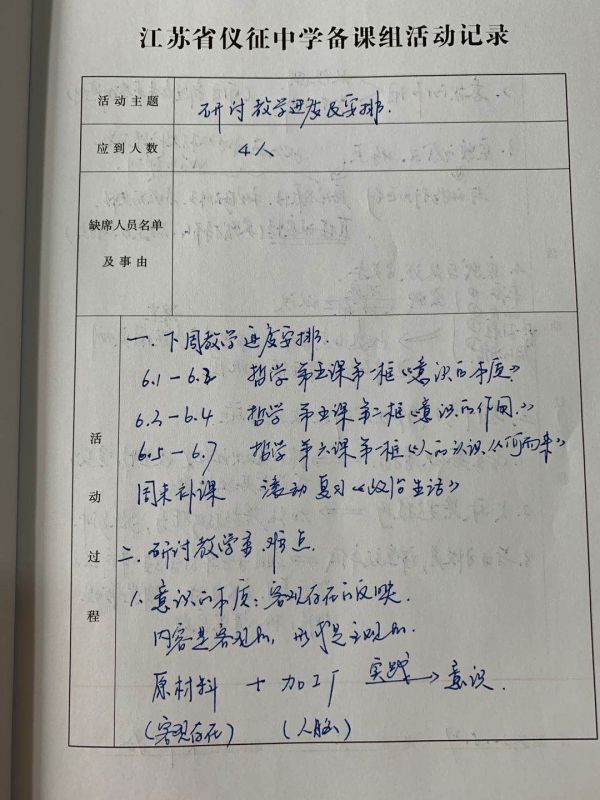 江苏省仪征中学备课组活动记录
活动主题
研讨教学进度及安排.
应到人数
4人
缺席人员名单
及事由
活动过程
一. 下周教学进度安排.
6.1-6.2 哲学 第五课第一框《意识的本质》
6.3-6.4 哲学 第五课第二框《意识的作用.》
6.5-6.7 哲学 第六课第一框《人的认识从何而来》
周末补课 滚动复习《政治生活》
二. 研讨教学重.难点.
1. 意识的本质：客观存在的反映.
内容是客观的，形式是主观的.
原材料 + 加工厂 实践→ 意识.
(客观存在) (人脑)